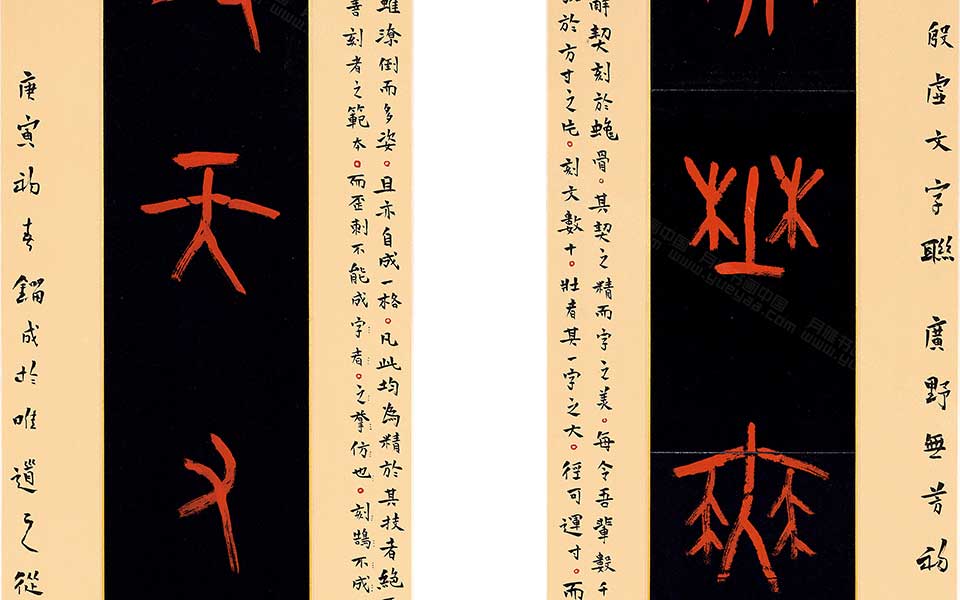 殷虛文字聯 廣野無芳初
埜無
辭契刻於龜骨。其契之精而字之美。每令吾輩數千
於方寸之片。刻文數十。壯者其一字之大。徑可運寸。而
雖潦倒而多姿。且亦自成一格。凡此均為精於其技者絕
善刻者之範本。而歪刺不能成字者。之摹仿也。刻鵠不成
天又
庚寅初春鎦成於唯道之從